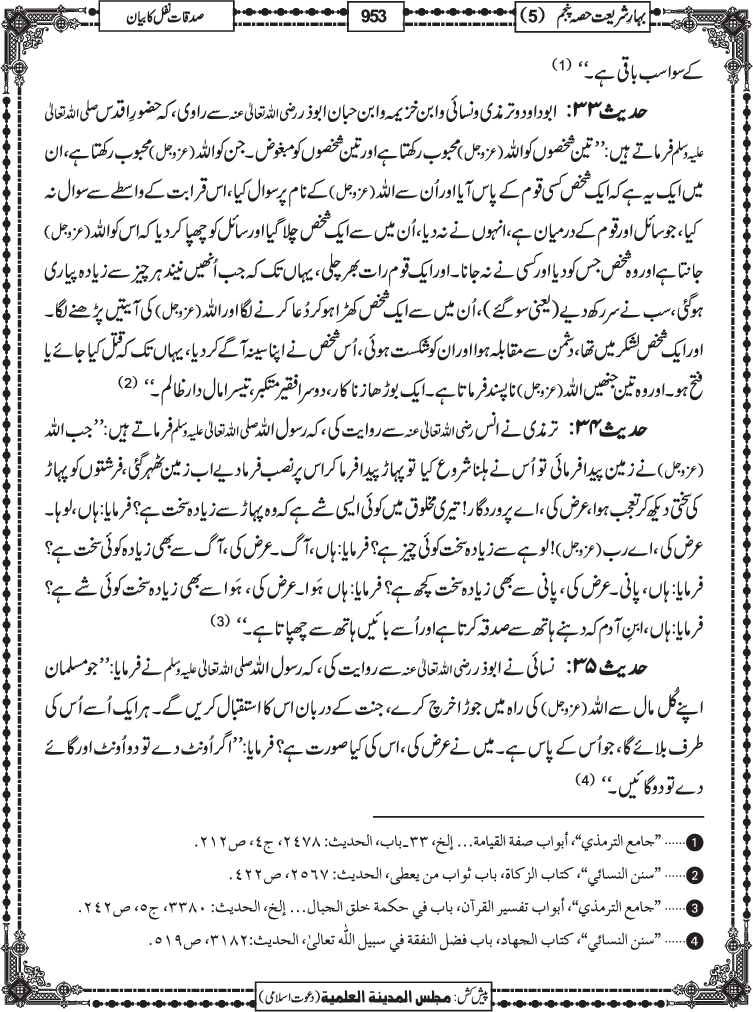 بہارِ شریعت حصہ پنجم (5)
953
صدقات نفل کا بیان
کے سوا سب باقی ہے۔‘‘ (1)
حدیث ۳۳: ابوداود و ترمذی و نسائی و ابن خزیمہ و ابن حبان ابوذر رضی اللہ تعالیٰ عنہ سے راوی، کہ حضورِ اقدس صلی اللہ تعالیٰ
علیہ وسلم فرماتے ہیں: ’’تین شخصوں کو اللہ (عزوجل) محبوب رکھتا ہے اور تین شخصوں کو مبغوض۔ جن کو اللہ (عزوجل) محبوب رکھتا ہے، ان
میں ایک یہ ہے کہ ایک شخص کسی قوم کے پاس آیا اور اُن سے اللہ (عزوجل) کے نام پر سوال کیا، اس قرابت کے واسطے سے سوال نہ
کیا، جو سائل اور قوم کے درمیان ہے، انہوں نے نہ دیا، اُن میں سے ایک شخص چلا گیا اور سائل کو چھپا کر دیا کہ اس کو اللہ (عزوجل)
جانتا ہے اور وہ شخص جس کو دیا اور کسی نے نہ جانا۔ اور ایک قوم رات بھر چلی، یہاں تک کہ جب اُنھیں نیند ہر چیز سے زیادہ پیاری
ہوگئی، سب نے سر رکھ دیے (یعنی سو گئے)، اُن میں سے ایک شخص کھڑا ہو کر دُعا کرنے لگا اور اللہ (عزوجل) کی آیتیں پڑھنے لگا۔
اور ایک شخص لشکر میں تھا، دشمن سے مقابلہ ہوا اور ان کو شکست ہوئی، اُس شخص نے اپنا سینہ آگے کر دیا، یہاں تک کہ قتل کیا جائے یا
فتح ہو۔ اور وہ تین جنھیں اللہ (عزوجل) ناپسند فرماتا ہے۔ ایک بوڑھا زناکار، دوسرا فقیر متکبر، تیسرا مال دار ظالم۔‘‘ (2)
حدیث ۳۴: ترمذی نے انس رضی اللہ تعالیٰ عنہ سے روایت کی، کہ رسول اللہ صلی اللہ تعالیٰ علیہ وسلم فرماتے ہیں: ’’جب اللہ
(عزوجل) نے زمین پیدا فرمائی تو اُس نے ہلنا شروع کیا تو پہاڑ پیدا فرما کر اس پر نصب فرما دیے اب زمین ٹھہر گئی، فرشتوں کو پہاڑ
کی سختی دیکھ کر تعجب ہوا، عرض کی، اے پروردگار! تیری مخلوق میں کوئی ایسی شے ہے کہ وہ پہاڑ سے زیادہ سخت ہے؟ فرمایا: ہاں، لوہا۔
عرض کی، اے رب (عزوجل)! لوہے سے زیادہ سخت کوئی چیز ہے؟ فرمایا: ہاں، آگ۔ عرض کی، آگ سے بھی زیادہ کوئی سخت ہے؟
فرمایا: ہاں، پانی۔ عرض کی، پانی سے بھی زیادہ سخت کچھ ہے؟ فرمایا: ہاں ہَوا۔ عرض کی، ہَوا سے بھی زیادہ سخت کوئی شے ہے؟
فرمایا: ہاں، ابنِ آدم کہ دہنے ہاتھ سے صدقہ کرتا ہے اور اُسے بائیں ہاتھ سے چھپاتا ہے۔‘‘ (3)
حدیث ۳۵: نسائی نے ابوذر رضی اللہ تعالیٰ عنہ سے روایت کی، کہ رسول اللہ صلی اللہ تعالیٰ علیہ وسلم نے فرمایا: ’’جو مسلمان
اپنے کُل مال سے اللہ (عزوجل) کی راہ میں جوڑا خرچ کرے، جنت کے دربان اس کا استقبال کریں گے۔ ہر ایک اُسے اُس کی
طرف بلائے گا، جو اُس کے پاس ہے۔ میں نے عرض کی، اس کی کیا صورت ہے؟ فرمایا: ’’اگر اُونٹ دے تو دو اُونٹ اور گائے
دے تو دو گائیں۔‘‘ (4)
1 ...... ”جامع الترمذي“، أبواب صفة القيامة... إلخ، ٣٣۔باب، الحديث: ٢٤٧٨، ج٤، ص٢١٢.
2 ...... ”سنن النسائي“، كتاب الزكاة، باب ثواب من يعطى، الحديث: ٢٥٦٧، ص٤٢٢.
3 ...... ”جامع الترمذي“، أبواب تفسير القرآن، باب في حكمة خلق الجبال... إلخ، الحديث: ٣٣٨٠، ج٥، ص٢٤٢.
4 ...... ”سنن النسائي“، كتاب الجهاد، باب فضل النفقة في سبيل الله تعالىٰ، الحديث:٣١٨٢، ص٥١٩.
پیش کش: مجلس المدینة العلمیة (دعوت اسلامی)